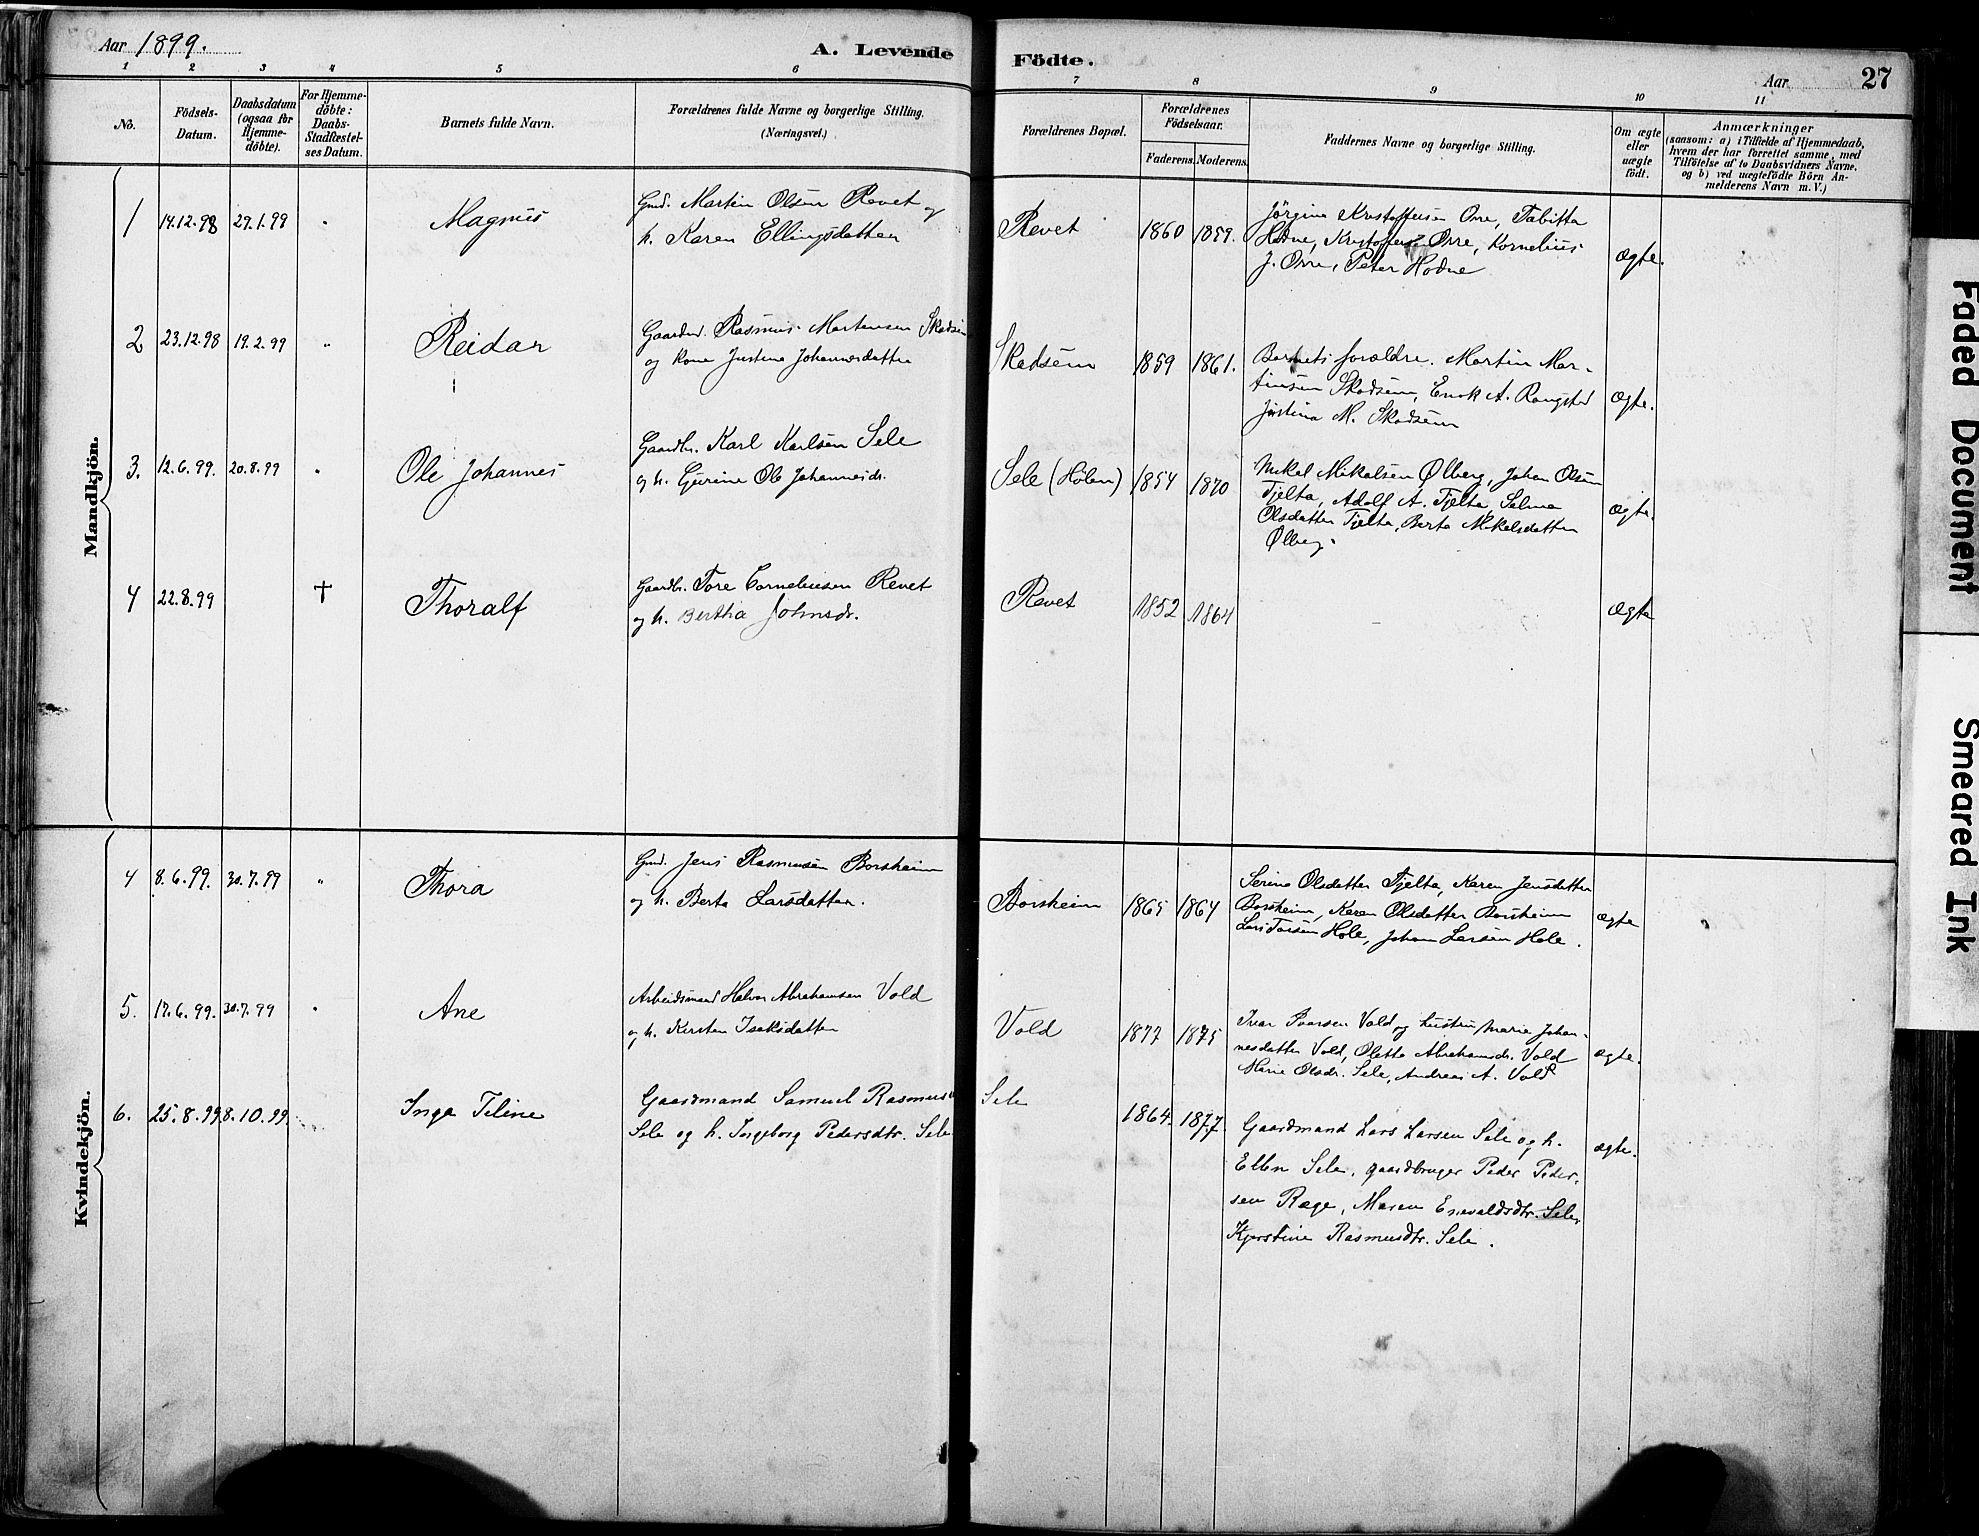 Aar 1899.
A. Levende
Födte.
Aar
27
1 2 3 4 5 6 7 8 9 10 11
No.
Födsels-
Datum.
Daabsdatum
(ogsaa for
Hjemme-
döbte).
For Hjemme-
döbte:
Daabs-
Stadfæstel-
ses Datum.
Barnets fulde Navn.
Forældrenes fulde Navne og borgerlige Stilling.
(Næringsvei.)
Forældrenes Bopæl.
Forældrenes
Födselsaar.
Faderens. Moderens.
Faddernes Navne og borgerlige Stilling.
Om ægte
eller
uægte
födt.
Anmærkninger
(saasom: a) i Tilfælde af Hjemmedaab,
hvem der har forrettet samme, med
Tilföielse af to Daabsvidners Navne,
og b) ved uægtefödte Börn An-
melderens Navn m. V.)
Mandkjön.
1 14.12.98 29.1.99 " Magnus
Gmd. Martin Olsen Revet og
h. Karen Ellingsdatter
Revet 1860 1859.
Jörgine Kristoffersen Orre, Tabitta
Hodne, Kristoffer Orre, Kornelius
J. Orre, Peter Hodne
ægte.
2 23.12.98 19.2.99 " Reidar
Gaardmd. Rasmus Martensen Skadsem
og kone Justine Johannesdatter
Skadsem 1859 1861.
Barnets forældre. Martin Mar-
tinsen Skadsem, Enok A. Rangstad
Justina M. Skadsem
ægte.
3. 12.6.99. 20.8.99 " Ole Johannes
Gaardbr. Karl Karlsen Sele
og h. Gurine Ole Johannesdr.
Sele (Hølen) 1854 1870
Mikal Mikalsen Ølberg, Johan Olsen
Tjelta, Adolf A. Tjelta, Selma
Olsdatter Tjelta, Berta Mikalsdatter
Ølberg.
ægte.
4 22.8.99 † Thoralf
Gaardbr. Tore Corneliusen Revet
og h. Bertha Johnsdr.
Revet 1852 1864
ægte
Kvindekjön.
4 8.6.99. 30.7.99 " Thora
Gmd. Jens Rasmussen Borsheim
og h. Berta Larsdatter.
Borsheim 1865 1864
Serine Olsdatter Tjelta, Karen Jensdatter
Borsheim, Karen Olsdatter Borsheim
Lars Torsen Hole, Johan Larsen Hole.
ægte
5. 17.6.99. 30.7.99 " Ane
Arbeidsmand Halvor Abrahamsen Vold
og h. Kirsten Isaksdatter
Vold 1877 1875
Ivar Ivarsen Vold og hustru Marie Johan-
nesdatter Vold, Oletta Abrahamsdr. Vold
Marie Olsdr. Sele, Andreas A. Vold
ægte.
6. 25.8.99 8.10.99. Inga Teline
Gaardmand Samuel Rasmusen
Sele og h. Ingeborg Pedersdtr. Sele
Sele 1864. 1877.
Gaardmand Lars Larsen Sele og h.
Ellen Sele, gaardbruger Peder Peder-
sen Ræge, Maren Enevaldsdtr. Sele,
Kjerstine Rasmusdtr. Sele.
ægte.
Faded Document
Smeared Ink